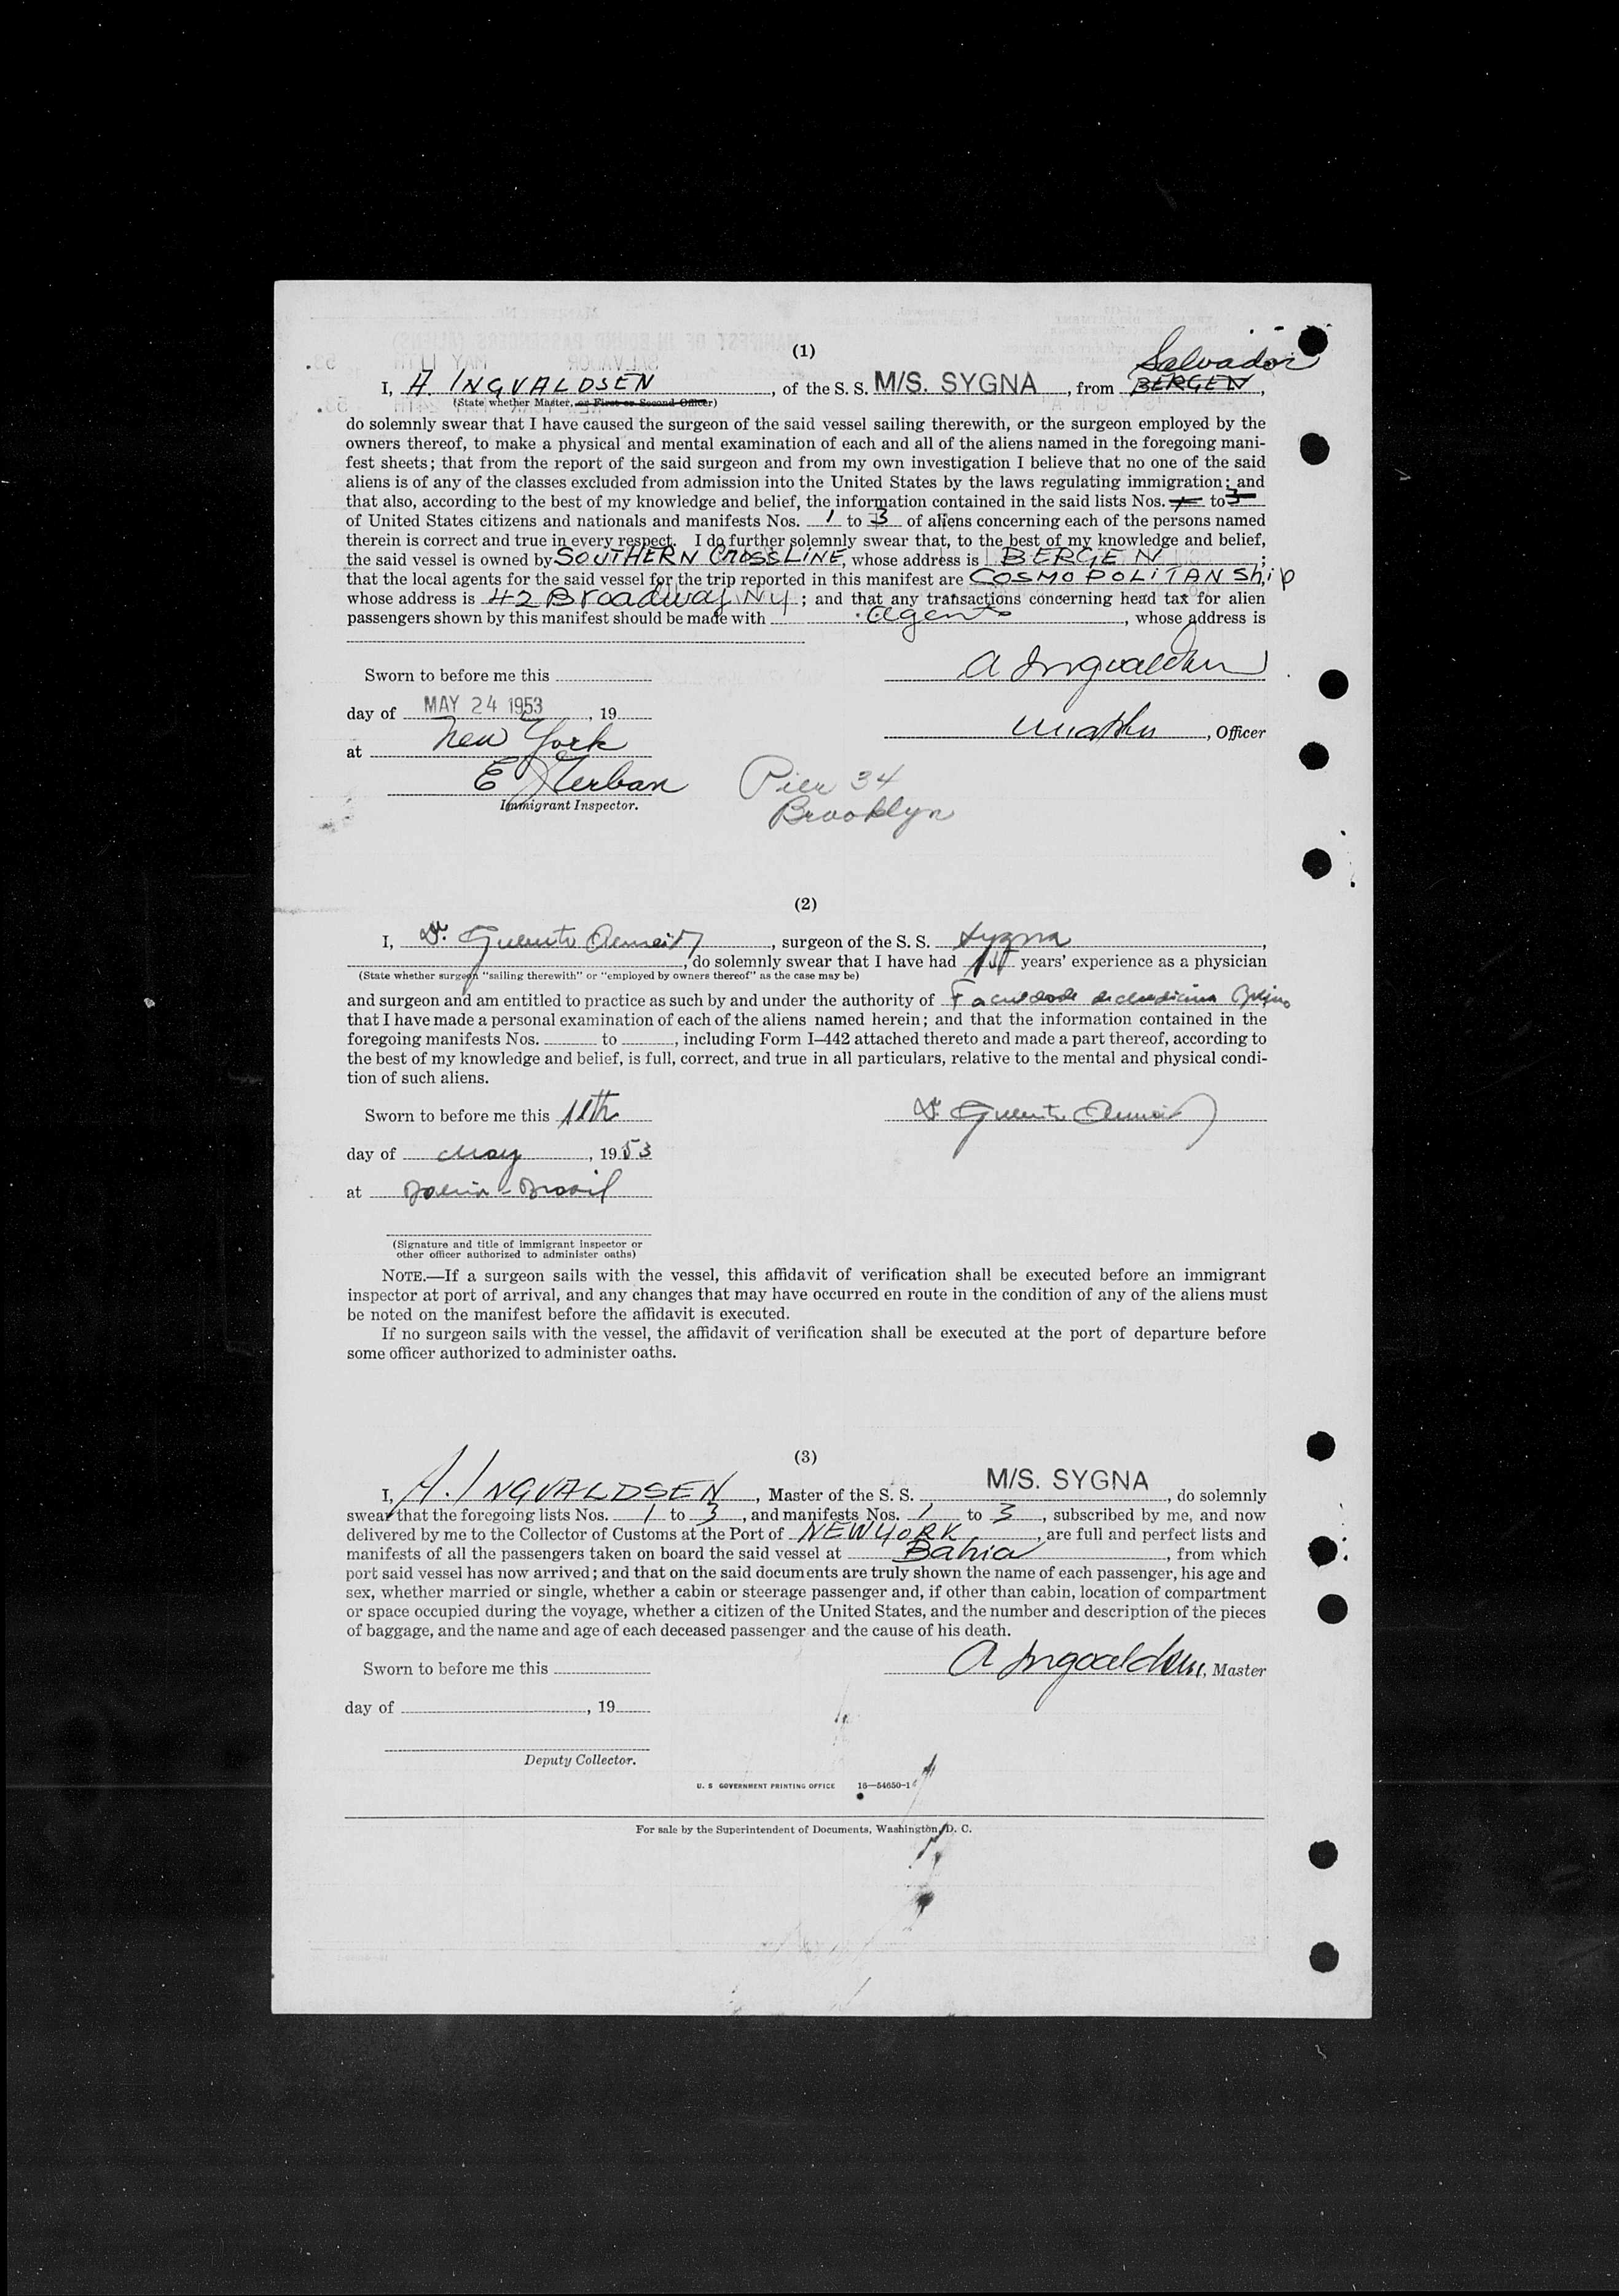 (1)
Salvador
I, A. INGVALDSEN, of the S. S. M/S. SYGNA, from BERGEN,
(State whether Master, or First or Second Officer)
do solemnly swear that I have caused the surgeon of the said vessel sailing therewith, or the surgeon employed by the
owners thereof, to make a physical and mental examination of each and all of the aliens named in the foregoing mani-
fest sheets; that from the report of the said surgeon and from my own investigation I believe that no one of the said
aliens is of any of the classes excluded from admission into the United States by the laws regulating immigration; and
that also, according to the best of my knowledge and belief, the information contained in the said lists Nos. 1 to 3
of United States citizens and nationals and manifests Nos. 1 to 3 of aliens concerning each of the persons named
therein is correct and true in every respect. I do further solemnly swear that, to the best of my knowledge and belief,
the said vessel is owned by SOUTHERN CROSS LINE, whose address is BERGEN;
that the local agents for the said vessel for the trip reported in this manifest are COSMOPOLITAN Ship
whose address is 42 Broadway NY; and that any transactions concerning head tax for alien
passengers shown by this manifest should be made with agents, whose address is
Sworn to before me this
A Ingvaldsen
day of MAY 24 1953, 19
Master, Officer
at New York
E Zerban
Immigrant Inspector.
Pier 34
Brooklyn
(2)
I, Dr., surgeon of the S. S. Sygna,
, do solemnly swear that I have had years' experience as a physician
(State whether surgeon "sailing therewith" or "employed by owners thereof" as the case may be)
and surgeon and am entitled to practice as such by and under the authority of Faculdade de Medicina
that I have made a personal examination of each of the aliens named herein; and that the information contained in the
foregoing manifests Nos. to , including Form I-442 attached thereto and made a part thereof, according to
the best of my knowledge and belief, is full, correct, and true in all particulars, relative to the mental and physical condi-
tion of such aliens.
Sworn to before me this 11th
Dr.
day of May, 1953
at Bahia - Brasil
(Signature and title of immigrant inspector or
other officer authorized to administer oaths)
NOTE.—If a surgeon sails with the vessel, this affidavit of verification shall be executed before an immigrant
inspector at port of arrival, and any changes that may have occurred en route in the condition of any of the aliens must
be noted on the manifest before the affidavit is executed.
If no surgeon sails with the vessel, the affidavit of verification shall be executed at the port of departure before
some officer authorized to administer oaths.
(3)
I, A. INGVALDSEN, Master of the S. S. M/S. SYGNA, do solemnly
swear that the foregoing lists Nos. 1 to 3, and manifests Nos. 1 to 3, subscribed by me, and now
delivered by me to the Collector of Customs at the Port of NEW YORK, are full and perfect lists and
manifests of all the passengers taken on board the said vessel at Bahia, from which
port said vessel has now arrived; and that on the said documents are truly shown the name of each passenger, his age and
sex, whether married or single, whether a cabin or steerage passenger and, if other than cabin, location of compartment
or space occupied during the voyage, whether a citizen of the United States, and the number and description of the pieces
of baggage, and the name and age of each deceased passenger and the cause of his death.
Sworn to before me this
A Ingvaldsen, Master
day of , 19
Deputy Collector.
U. S GOVERNMENT PRINTING OFFICE 16—54650-1
For sale by the Superintendent of Documents, Washington, D. C.